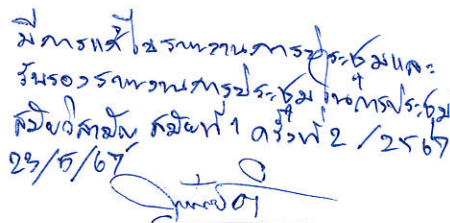 มีการแก้ไขรายงานการประชุมและ
รับรองรายงานการประชุม ในการประชุม
สมัยวิสามัญ สมัยที่ 1 ครั้งที่ 2 / 2567
23/5/67